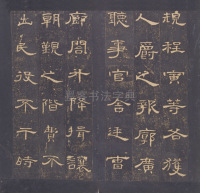 魏程寅等各獲
人爵之報廓廣
聽事官舍廷曹
廊閣升降揖讓
朝覲之階費不
出民役不干時